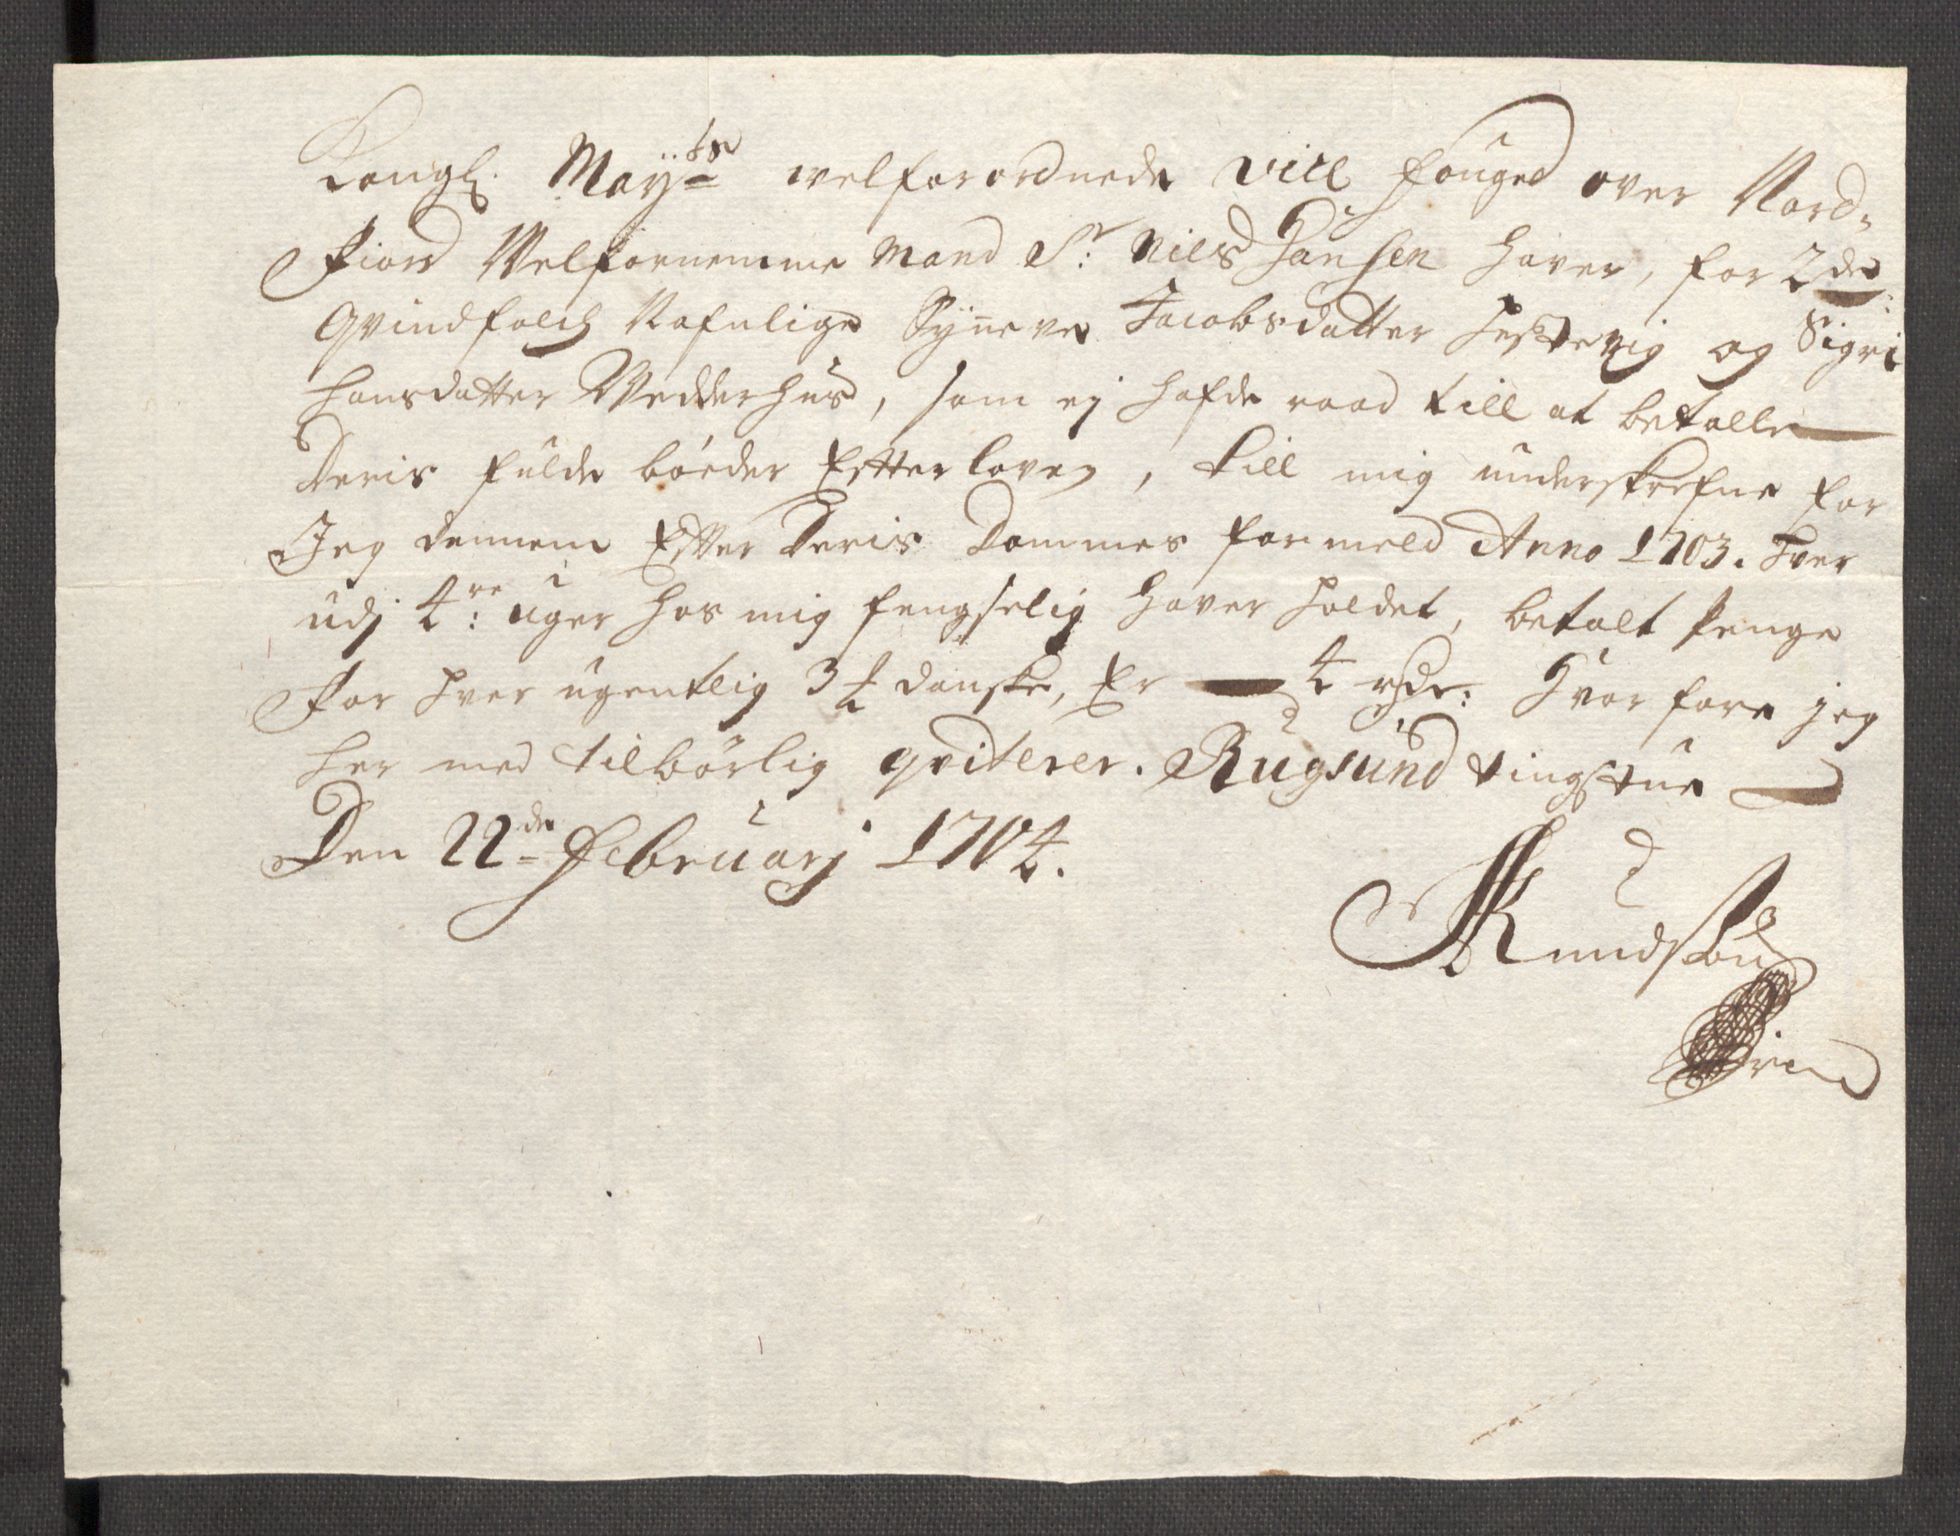 Kongl. Mayts welforordnede Vice fouged over Nord-
Fiord Welfornemme Mand Sr: Niels Hansen haver, for 2de
Qvindfolch Nafnlige Syneve Jacobsdatter Hestevig og Sigri
Hansdatter Vedderhus, som ej hafde raad till at betalle
Deris fulde bøder Efter loven, till mig underskrefne for
Jeg dennem Efter Deris Dommes formeld Anno 1703. hver
udj 4re: uger hos mig fengselig haver holdet, betalt Penge
For hver ugentlig 3 ß danske, Er 4 rdr: Hvorfore jeg
her med tilbørlig qviterer. Rugsund tingstue
Den 22de Februarj 1704.
Knudsøn